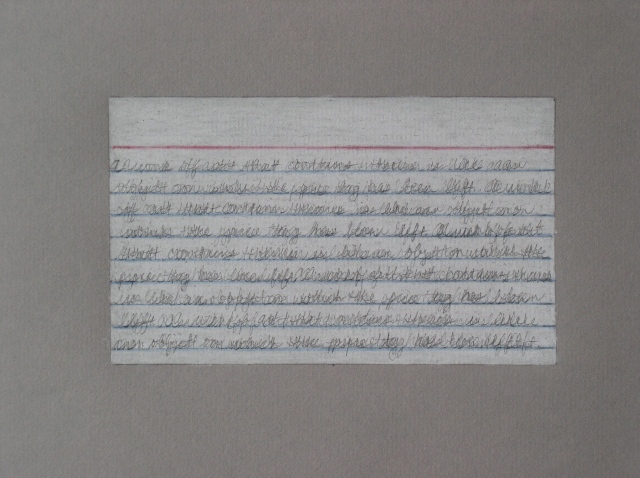 A work of art that contains theories is like an
object on which the price tag has been left. A work
of art that contains theories is like an object on
which the price tag has been left A work of art
that contains theories is like an object on which the
price tag has been left A work of art that contains theories
is like an object on which the price tag has been
left A work of art that contains theories is like
an object on which the price tag has been left